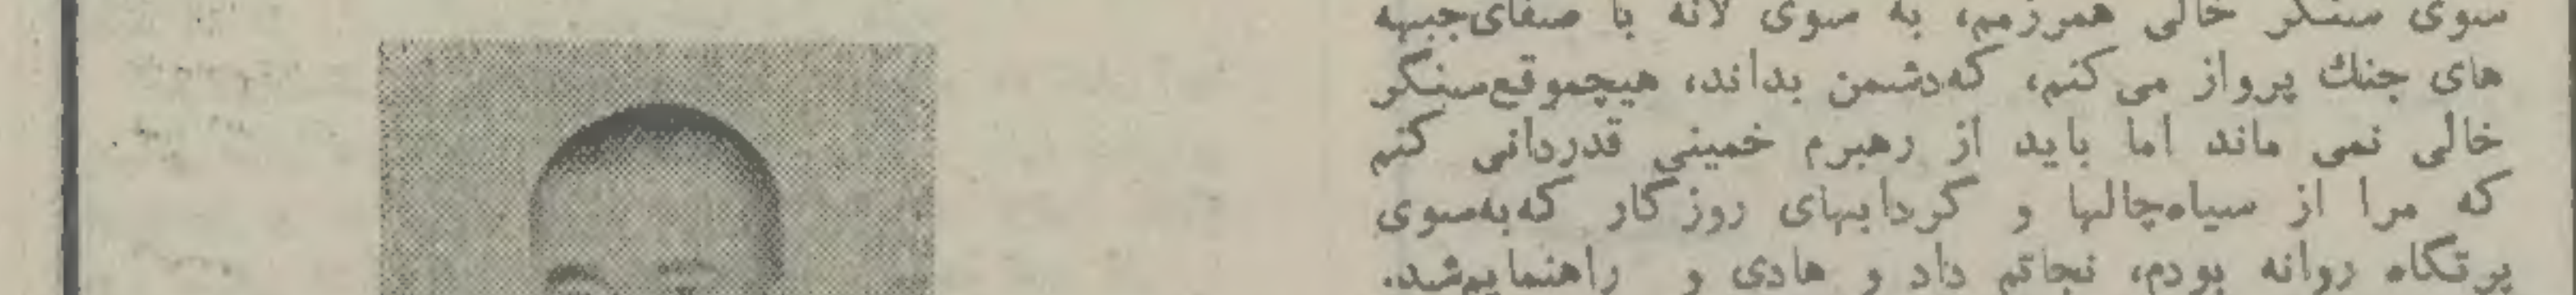 سوی سنگر خالی همرزمم، به سوی لانه با صفای‌جبهه
های جنك پرواز می‌کنم، که‌دشمن بداند، هیچموقع‌سنگر
خالی نمی ماند اما باید از رهبرم خمینی قدردانی کنم
که مرا از سیاه‌چالها و گردابهای روزگار که‌به‌سوی
پرتگاه روانه بودم، نجاتم داد و هادی و راهنمایم‌شد.